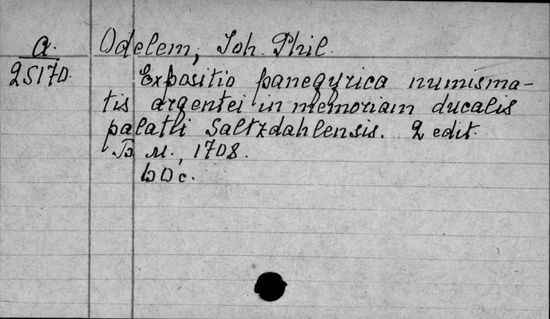 a.
25170.
Odelem, Joh. Phil.
Expositio panegyrica numisma-
tis argentei in memoriam ducalis
palatii Saltzdahlensis. 2 edit.
B M., 1708.
bDc.